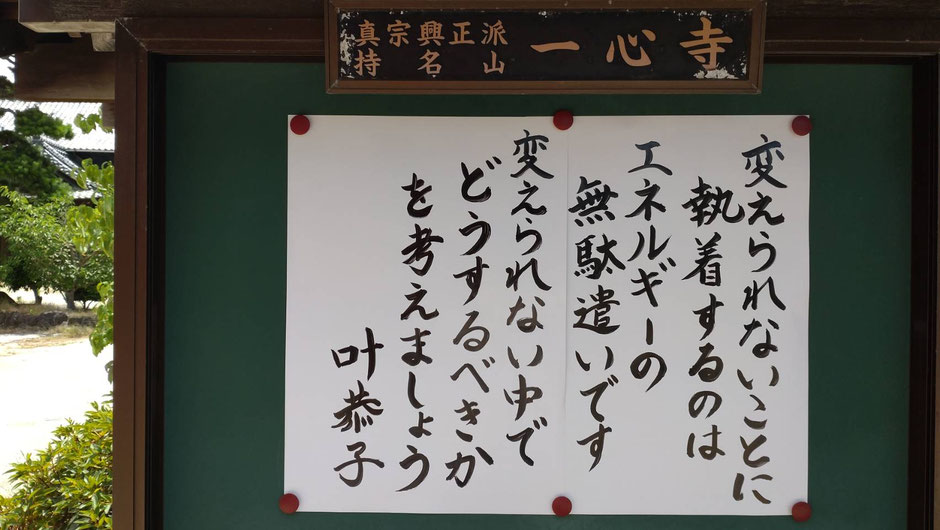 真宗興正派
持名山
一心寺
変えられないことに
執着するのは
エネルギーの
無駄遣いです
変えられない中で
どうするべきか
を考えましょう
叶恭子